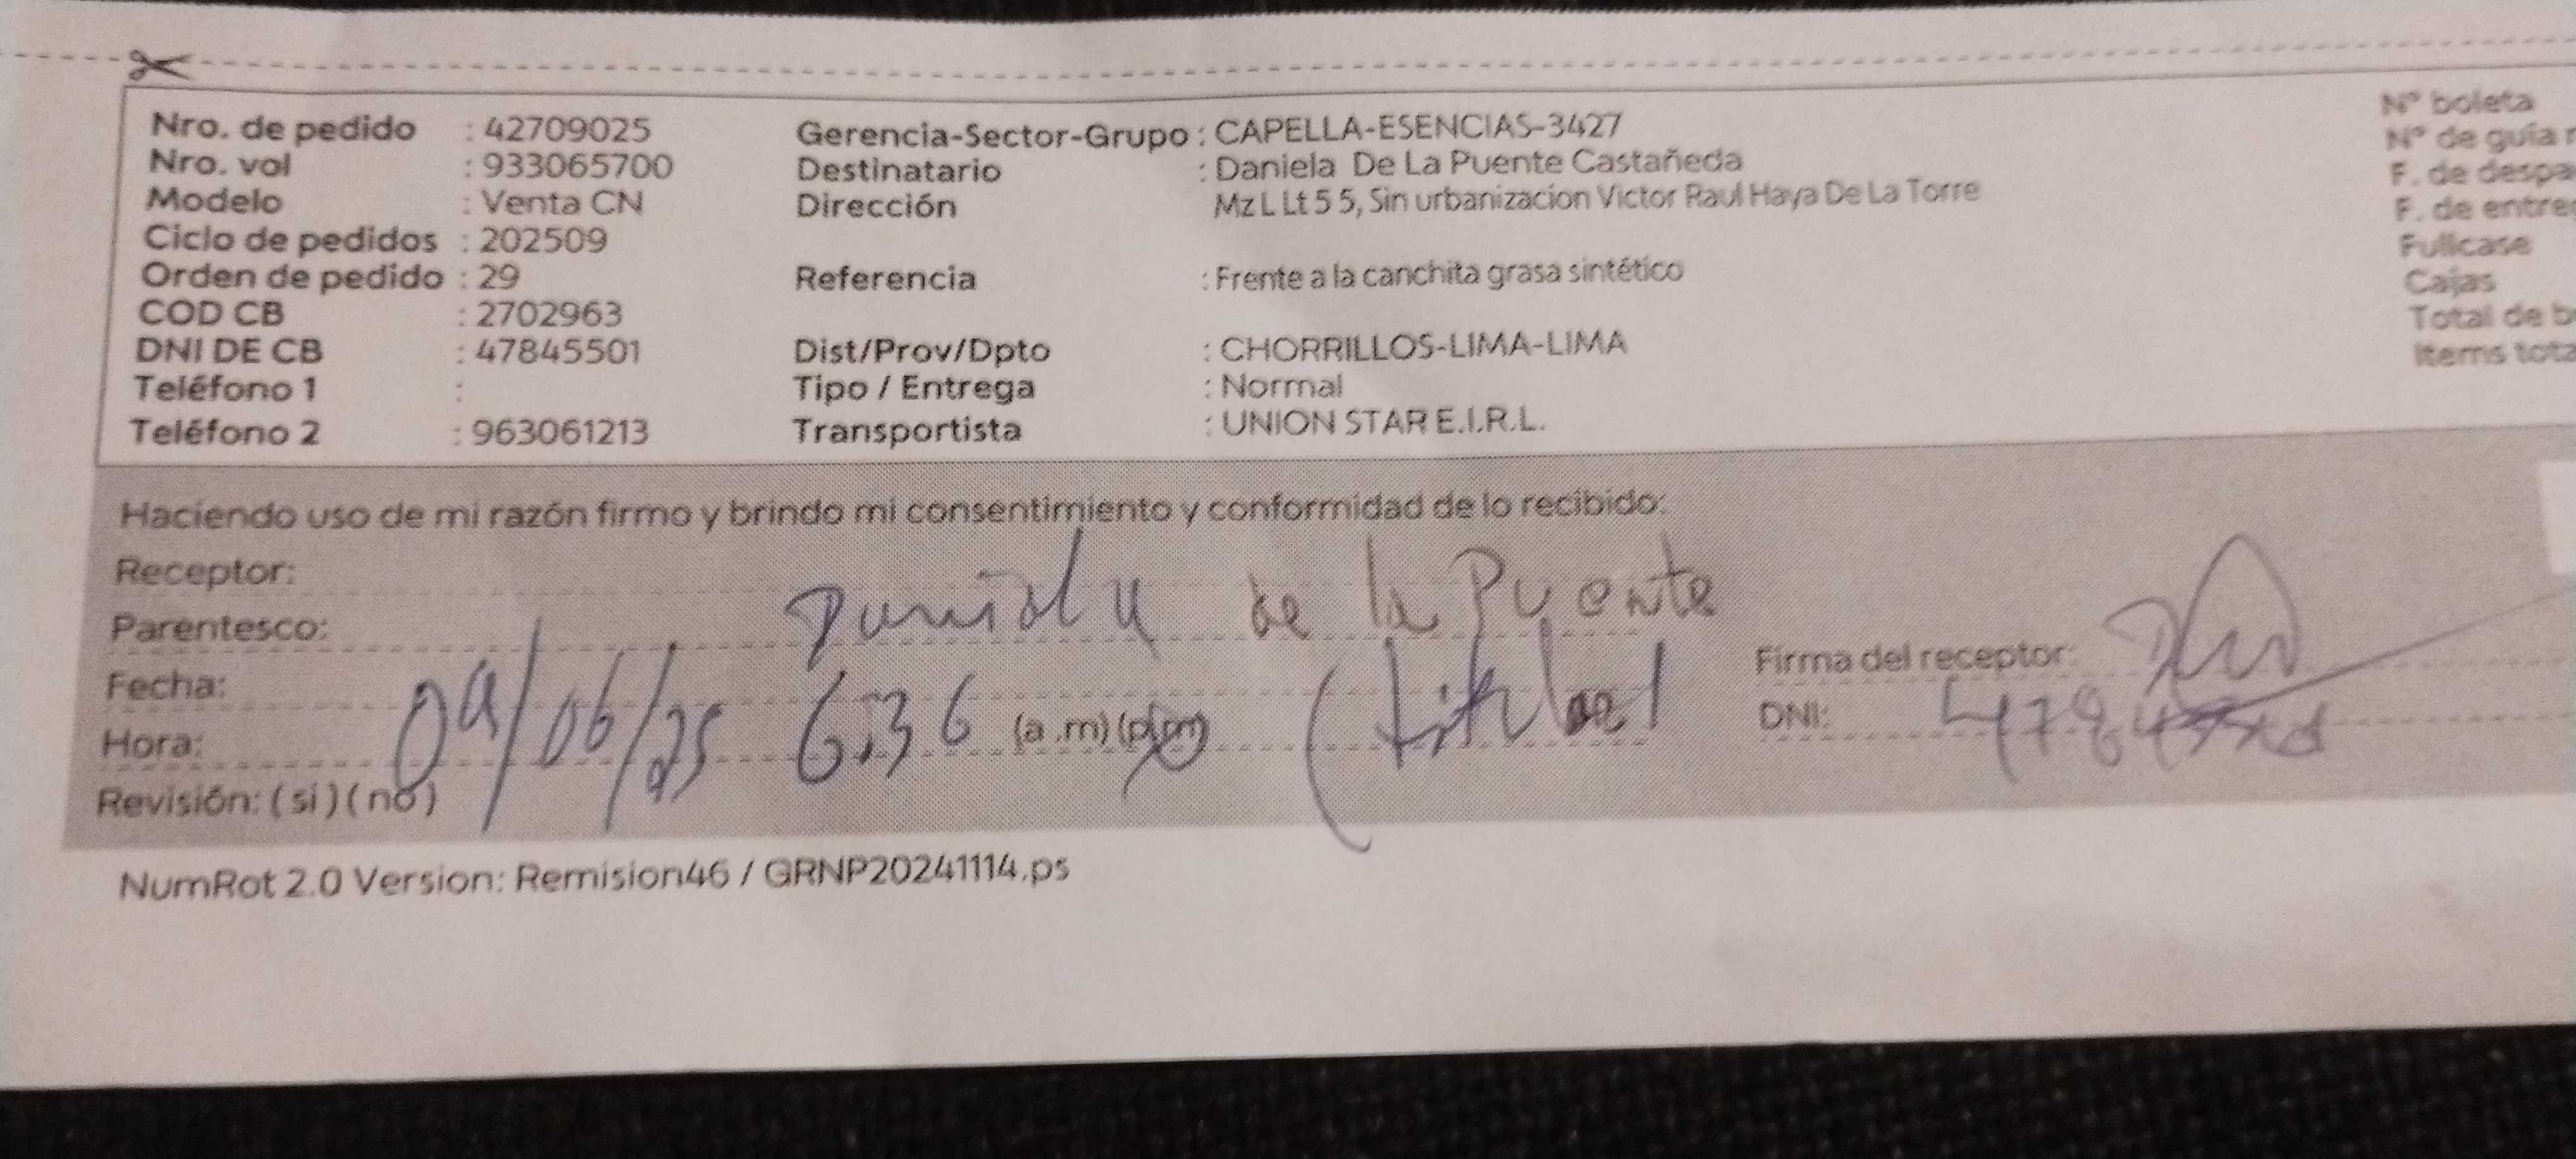 Nro. de pedido : 42709025
Nro. vol : 933065700
Modelo : Venta CN
Ciclo de pedidos : 202509
Orden de pedido : 29
COD CB : 2702963
DNI DE CB : 47845501
Teléfono 1 :
Teléfono 2 : 963061213
Gerencia-Sector-Grupo : CAPELLA-ESENCIAS-3427
Destinatario : Daniela De La Puente Castañeda
Dirección Mz L Lt 5 5, Sin urbanizacion Victor Raul Haya De La Torre
Referencia : Frente a la canchita grasa sintético
Dist/Prov/Dpto : CHORRILLOS-LIMA-LIMA
Tipo / Entrega : Normal
Transportista : UNION STAR E.I.R.L.
N° boleta
N° de guía
F. de
F. de
Fullcase
Cajas
Total de
Items
Haciendo uso de mi razón firmo y brindo mi consentimiento y conformidad de lo recibido:
Receptor:
Daniela de la Puente
Parentesco:
Fecha:
09/06/25 6:36 (a .m) (p.m) (titular)
Hora:
Revisión: ( si ) ( no )
Firma del receptor:
DNI:
NumRot 2.0 Version: Remision46 / GRNP20241114.ps